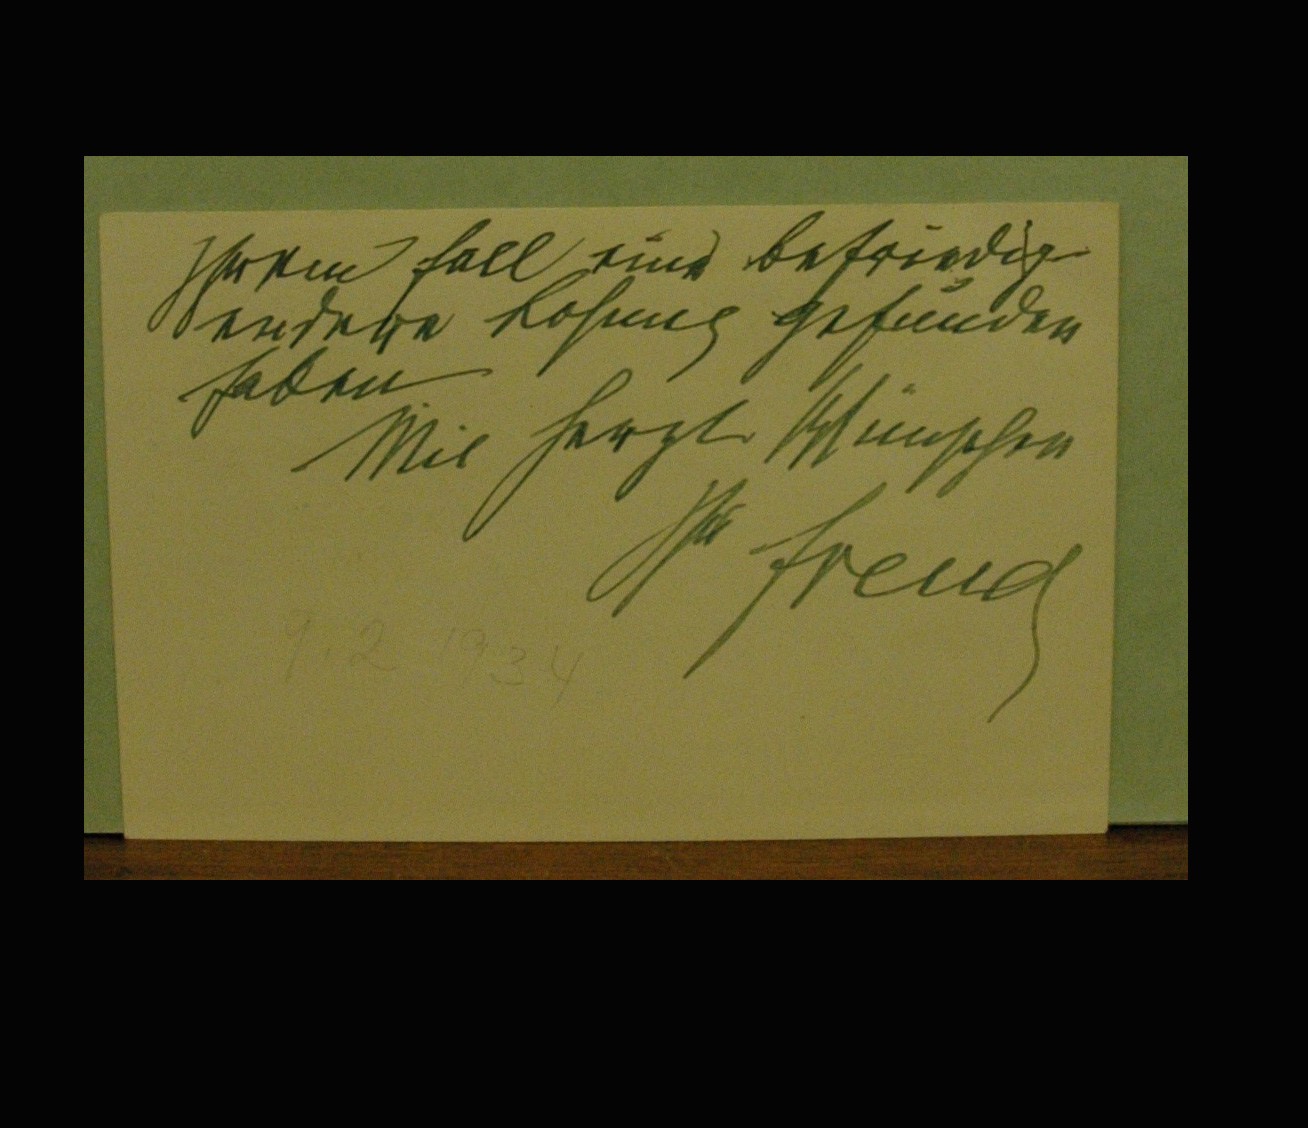 Ihrem Fall eine befriedig-
endere Lösung gefunden
haben
Mit herzl Wünschen
Ihr Freud
9.2 1934